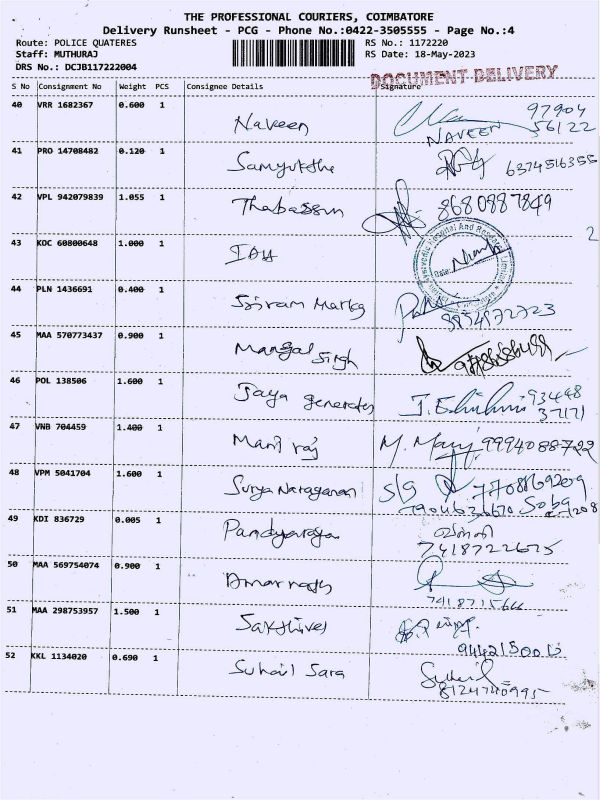 THE PROFESSIONAL COURIERS, COIMBATORE
Delivery Runsheet - PCG - Phone No.:0422-3505555 - Page No.:4
Route: POLICE QUATERES RS No.: 1172220
Staff: MUTHURAJ RS Date: 18-May-2023
DRS No.: DCJB117222004
DOCUMENT DELIVERY
S No Consignment No Weight PCS Consignee Details Signature
40 VRR 1682367 0.600 1 Naveen 97904
NAVEEN 56122
41 PRO 14708482 0.120 1 Samyuktha 6374516355
42 VPL 942079839 1.055 1 Thabassum 8680887849
43 KOC 60800648 1.000 1 2
44 PLN 1436691 0.400 1 Sriram Marka
45 MAA 570773437 0.900 1 Mangal Singh
46 POL 138506 1.600 1 Jaya generates 93448
37171
47 VNB 704459 1.400 1 Mani raj 9994088722
48 VPM 5041704 1.600 1 Surya Narayanan S/G
49 KDI 836729 0.005 1 Pandyaraja
7418722675
50 MAA 569754074 0.900 1 Amarnath
51 MAA 298753957 1.500 1 Sakthivel
52 KKL 1134020 0.690 1 Suhail Sara Suhail
8124740995